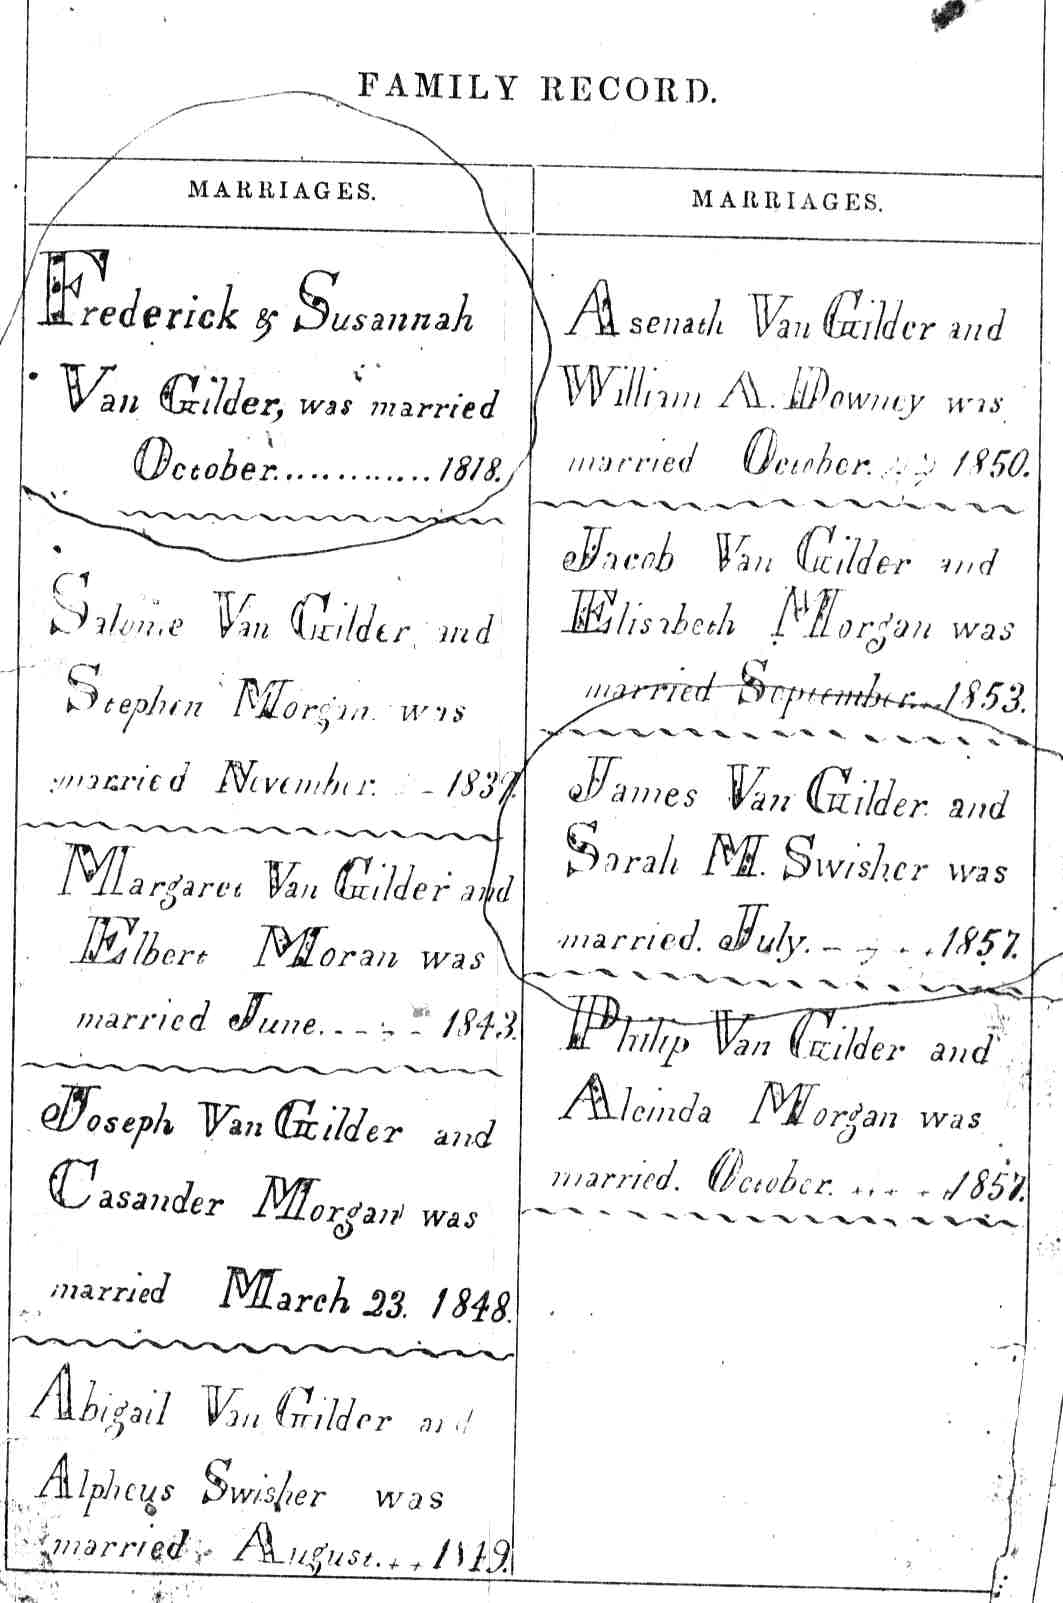 FAMILY RECORD.
MARRIAGES.
Frederick & Susannah
Van Gilder, was married
October.............1818.
Salome Van Gilder and
Stephen Morgan was
married November. 1837.
Margaret Van Gilder and
Elbert Moran was
married June..... 1843.
Joseph Van Gilder and
Casander Morgan was
married March 23. 1848.
Abigail Van Gilder and
Alpheus Swisher was
married August... 1849.
MARRIAGES.
Asenath Van Gilder and
William A. Downey was
married October... 1850.
Jacob Van Gilder and
Elisabeth Morgan was
married September...1853.
James Van Gilder and
Sarah M. Swisher was
married. July.....1857.
Philip Van Gilder and
Alcinda Morgan was
married. October......1857.